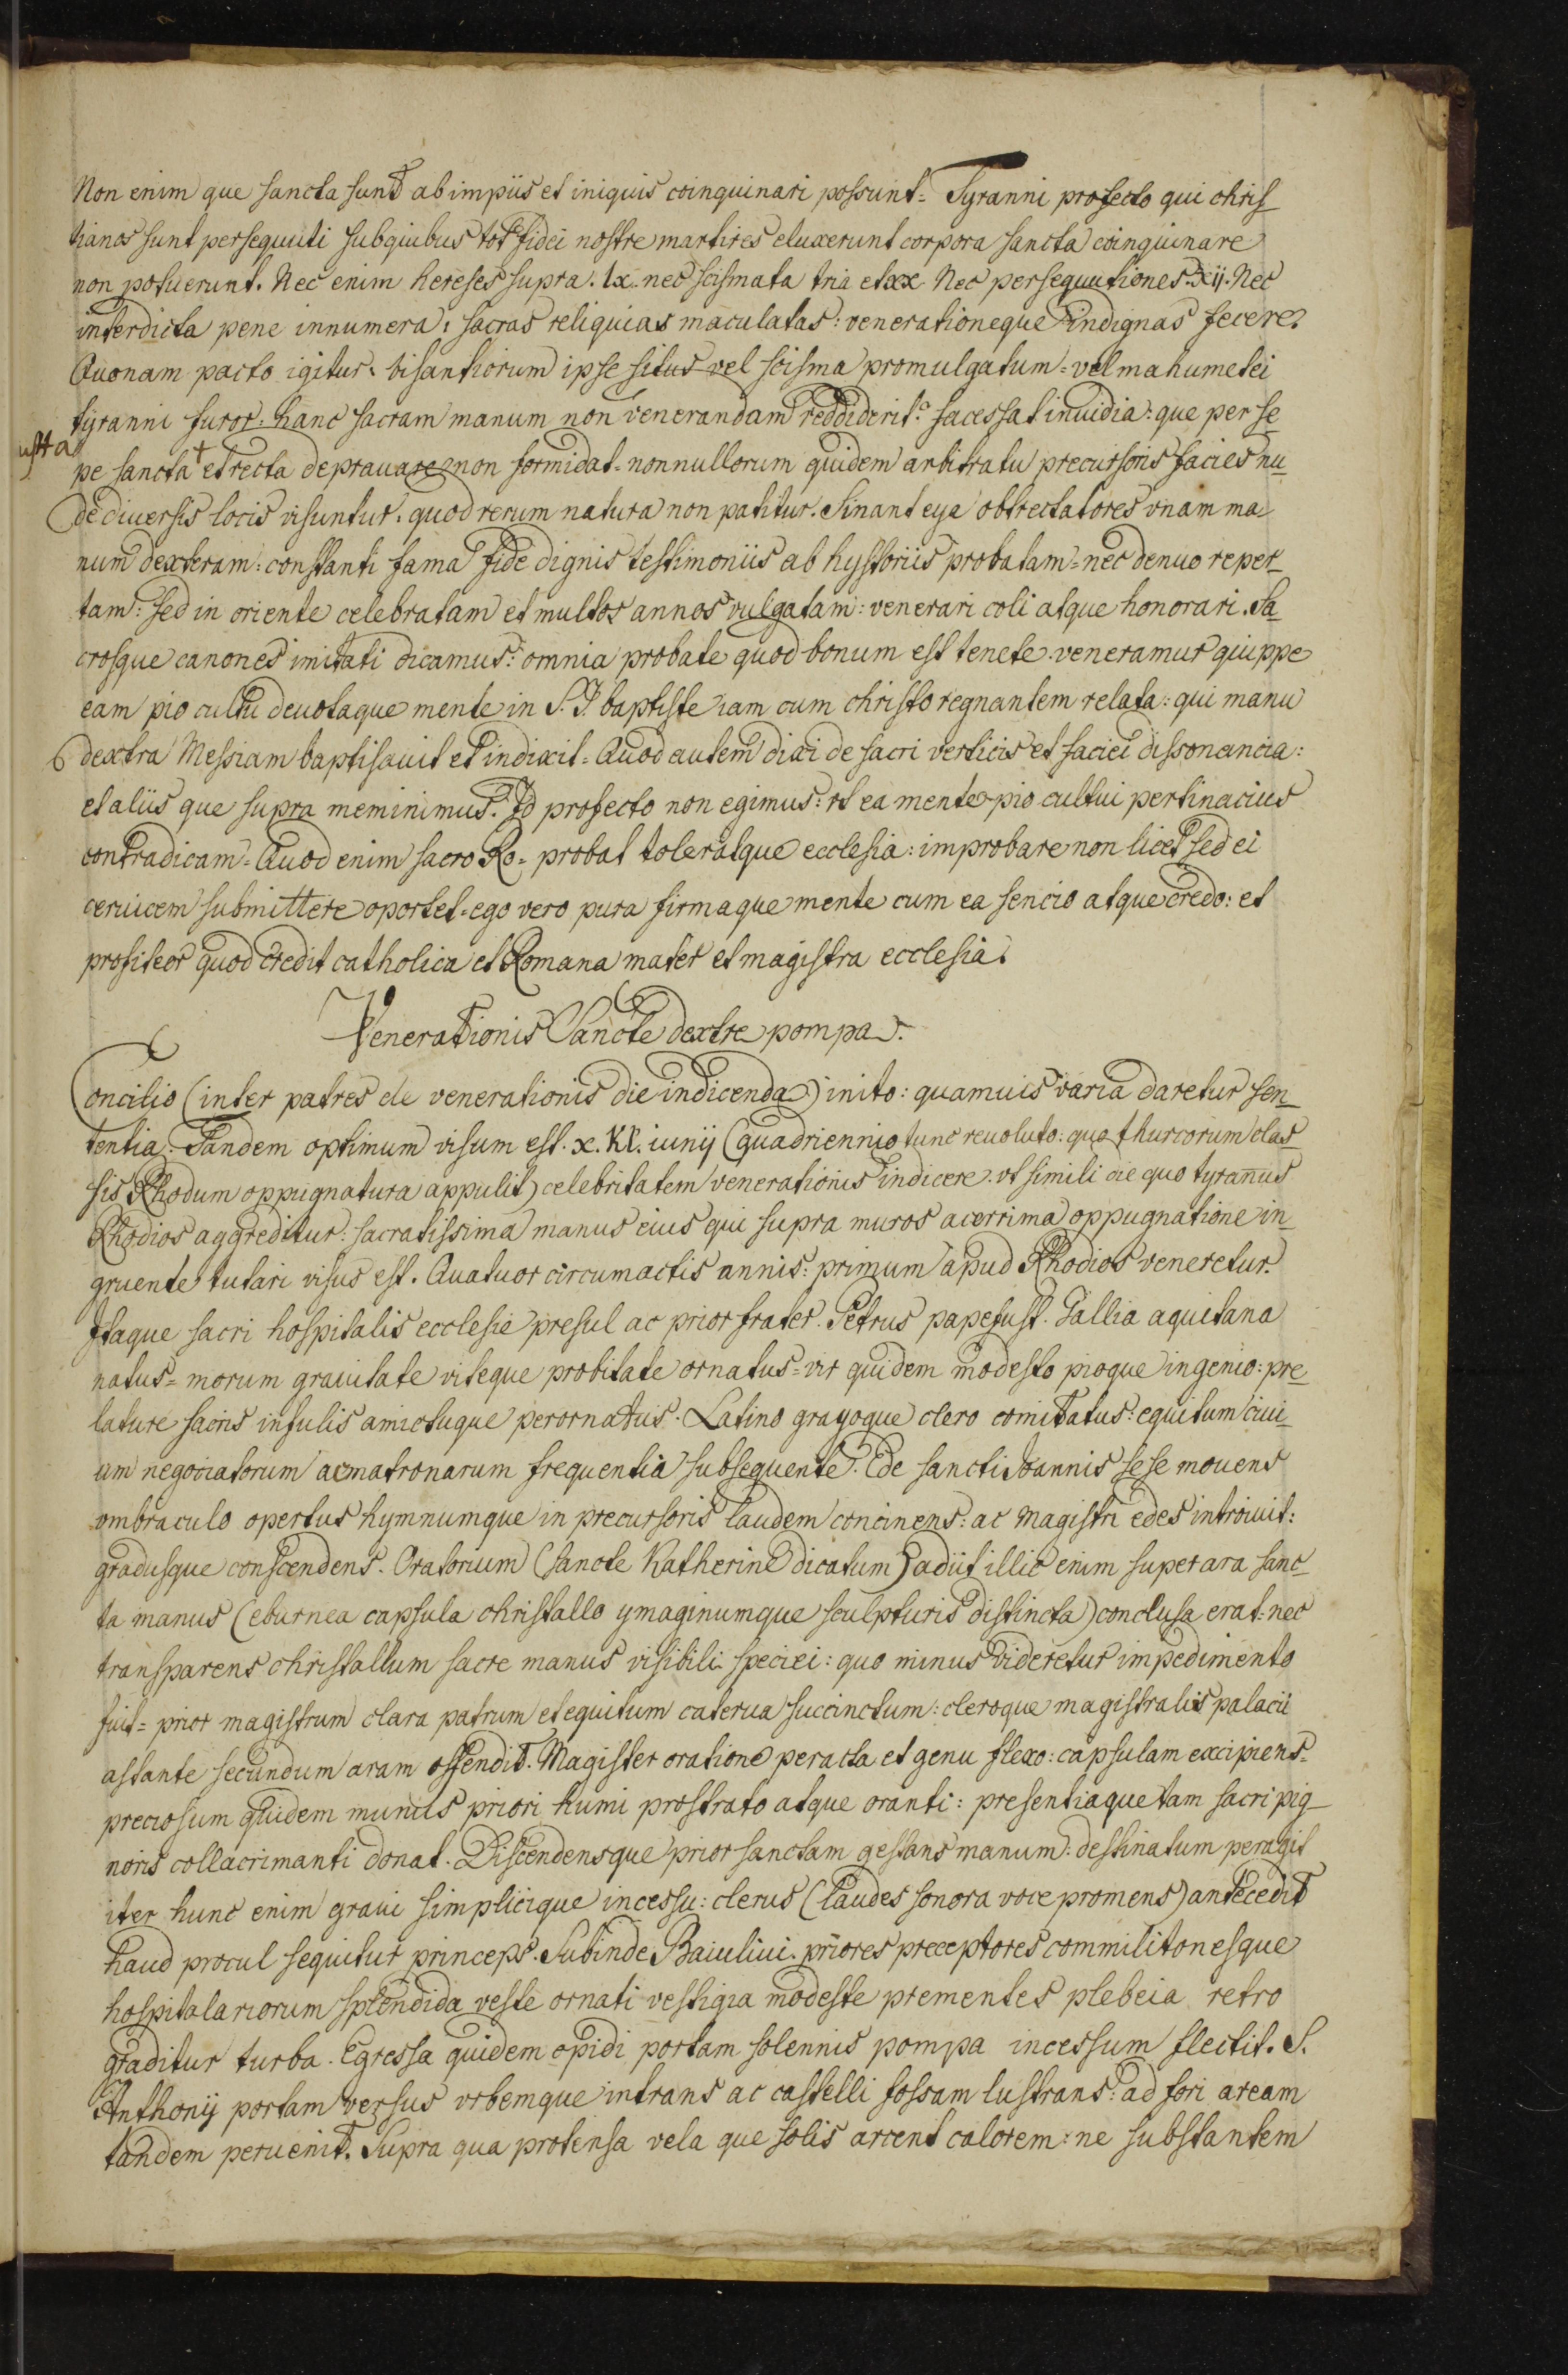 Non enim que sancta sunt ab impiis et iniquis coinquinari possunt= Tyranni profecto qui chris_
tianos sunt persequuti subquibus tot fidei nostre martires eluxerunt corpora sancta coinquinare
non potuerunt. Nec enim hereses supra. lx. nec scismata tria et xx. Nec persequutiones. xij. Nec
interdicta pene innumera: sacras reliquias maculatas: venerationeque indignas fecere?
Quonam pacto igitur. bisantiorum ipse situs vel scisma promulgatum= vel mahumetei
tyranni furor: hanc sacram manum non venerandam reddiderit? facessat inuidia: que per se_
usta
pe sancta † et recta deprauare non formidat= nonnullorum quidem arbitratu precursoris facies nu_
de diuersis locis visuntur. quod rerum natura non patitur. Sinant eya obtrectatores vnam ma_
num dexteram: constanti fama fide dignis testimoniis ab hystoriis probatam= nec denuo reper_
tam: sed in oriente celebratam et multos annos vulgatam: venerari coli atque honorari. Sa_
crosque canones imitati dicamus: omnia probate quod bonum est tenete. veneramur quippe
eam pio cultu deuotaque mente in S. J. baptiste iam cum christo regnantem relata: qui manu
dextra Messiam baptisauit et indixit= Quod autem dixi de sacri verticis et faciei dissonancia:
et aliis que supra meminimus. Id profecto non egimus: vt ea mente pio cultui pertinacius
contradicam= Quod enim sacro Ro= probat toleratque ecclesia: improbare non licet sed ei
ceruicem submittere oportet= ego vero pura firmaque mente cum ea sencio atque credo: et
profiteor quod credit catholica et Romana mater et magistra ecclesia.
Venerationis Sancte dextre pompa.
Concilio (inter patres de venerationis die indicenda) inito: quamuis varia daretur sen_
tentia: Tandem optimum visum est. x. Kl. iunij (quadriennio tunc reuoluto: quo thurcorum clas_
sis Rhodum oppugnatura appulit) celebritatem venerationis indicere. vt simili die quo tyrannus
Rhodios aggreditur: sacratissima manus eius qui supra muros acerrima oppugnatione in_
gruente tutari visus est. Quatuor circumactis annis: primum apud Rhodios veneretur.
Itaque sacri hospitalis ecclesie presul ac prior frater. Petrus papefust. Gallia aquitana
natus= morum grauitate viteque probitate ornatus= vir quidem modesto pioque ingenio: pre_
lature sacris infulis amictuque perornatus. Latino grayoque clero comitatus: equitum ciui_
um negociatorum ac matronarum frequentia subsequente. Ede sancti Joannis sese mouens
ombraculo opertus hymnumque in precursoris laudem concinens: ac Magistri edes introiuit:
gradusque conscendens. Oratorium (Sancte Katherine dicatum) adiit illic enim super ara sanc_
ta manus (eburnea capsula christallo ymaginumque sculpturis distincta) conclusa erat: nec
transparens christallum sacre manus visibili speciei: quo minus videretur impedimento
fuit= prior magistrum clara patrum et equitum caterua succinctum: cleroque magistralis palacii
astante secundum aram offendit. Magister oratione peracta et genu flexo: capsulam excipiens=
preciosum quidem munus priori humi prostrato atque oranti: presentiaque tam sacri pig_
noris collacrimanti donat. Discendensque prior sanctam gestans manum: destinatum peragit
iter hunc enim graui simplicique incessu: clerus (laudes sonora voce promens) antecedit
haud procul sequitur princeps. Subinde Baiuliui. priores preceptores commilitonesque
hospitalariorum splendida veste ornati vestigia modeste prementes plebeia retro
graditur turba. Egressa quidem opidi portam solennis pompa incessum flectit. S.
Anthonij portam versus vrbemque intrans ac castelli fossam lustrans: ad fori aream
tandem peruenit. Supra qua protensa vela que solis arcent calorem: ne substantem